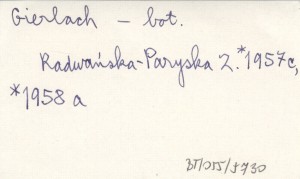 Gierlach – bot.
Radwańska-Paryska Z. *1957c,
*1958 a